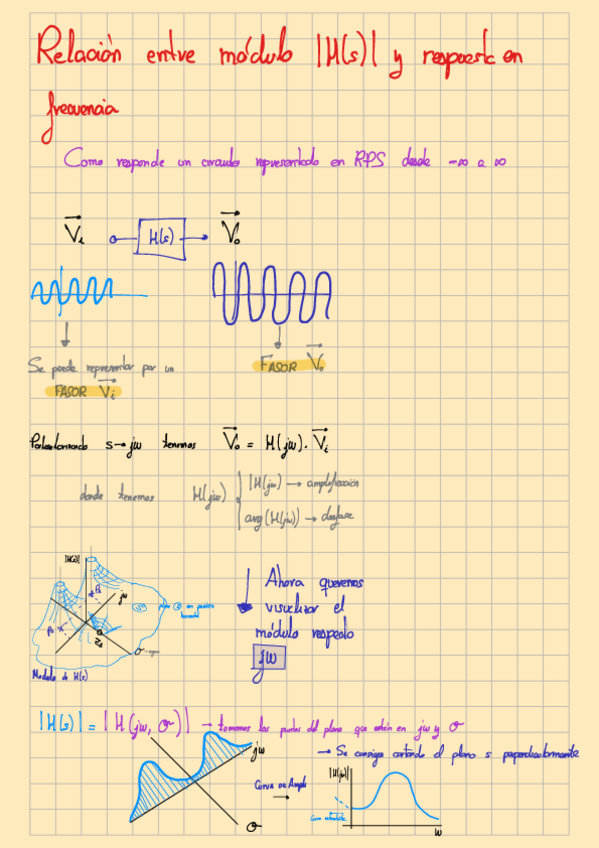 Relación entre módulo |H(s)| y respuesta en
frecuencia
Como responde un circuito representado en RPS desde -∞ a ∞
Vi H(s) Vo
Se puede representar por un
FASOR Vi
FASOR Vo
Particularizando s→jω tenemos Vo = H(jω)·Vi
donde tenemos H(jω)
|H(jω) → amplificación
arg(H(jω)) → desfase
|H(s)|
jω
σ
Modulo de H(s)
Ahora queremos
visualizar el
módulo respecto
jω
|H(s)| = |H(jω, σ)| → tomamos los puntos del plano que estén en jω y σ
→ Se consigue cortando el plano s perpendicularmente
jω
σ
Curva de Ampli
→
|H(jω)|
ω